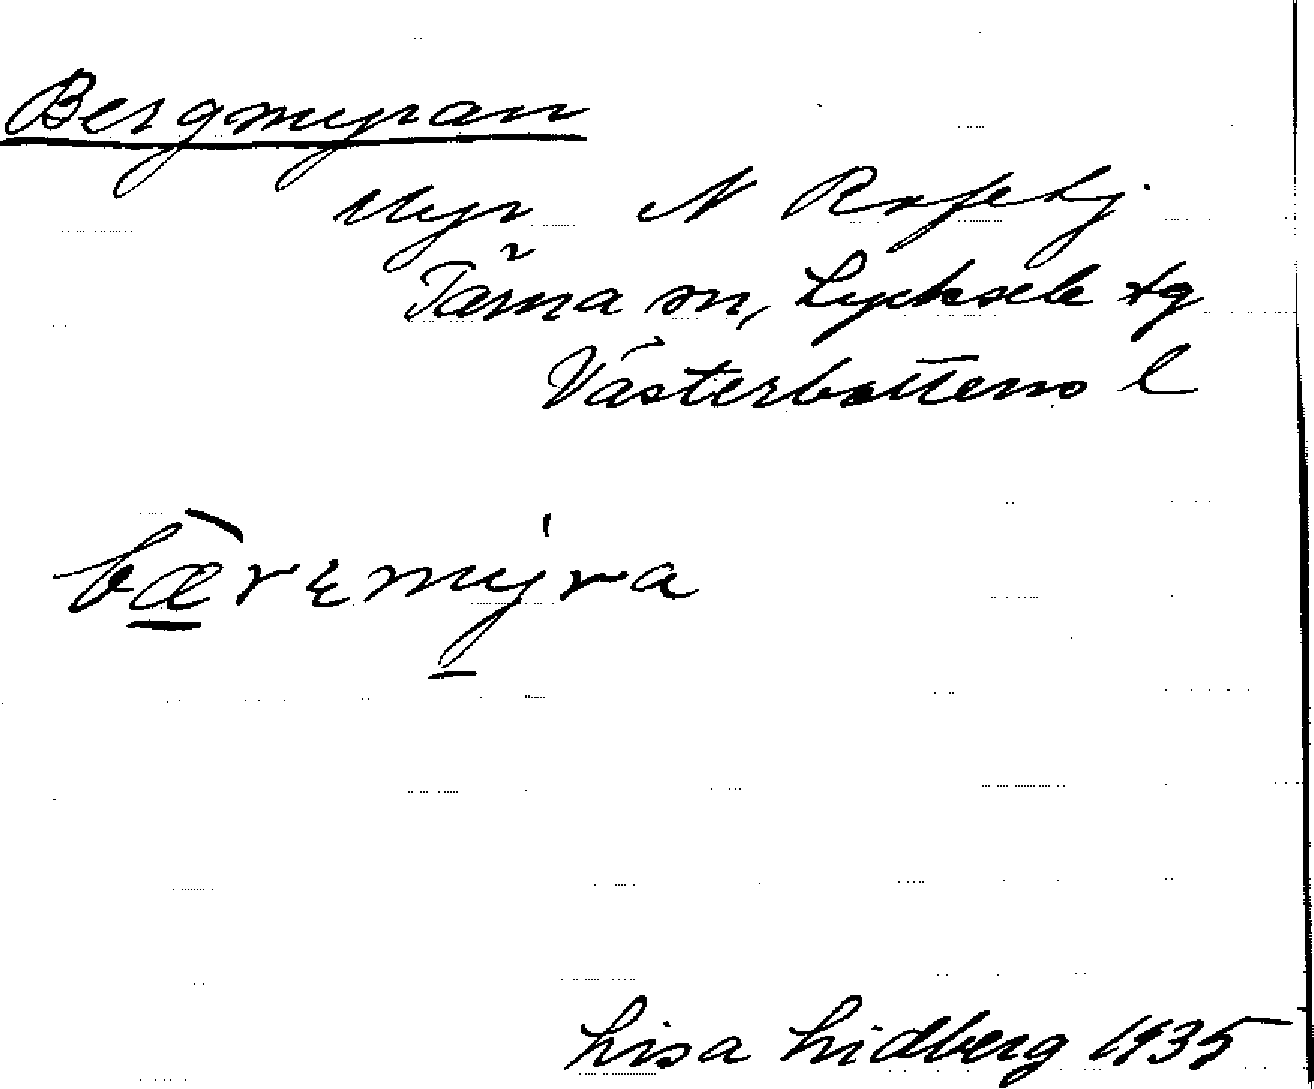 Bergmyran
Myr N
Tärna sn, Lycksele tg
Västerbottens l
bæ̀rɛmýra
Lisa Lidberg 1935